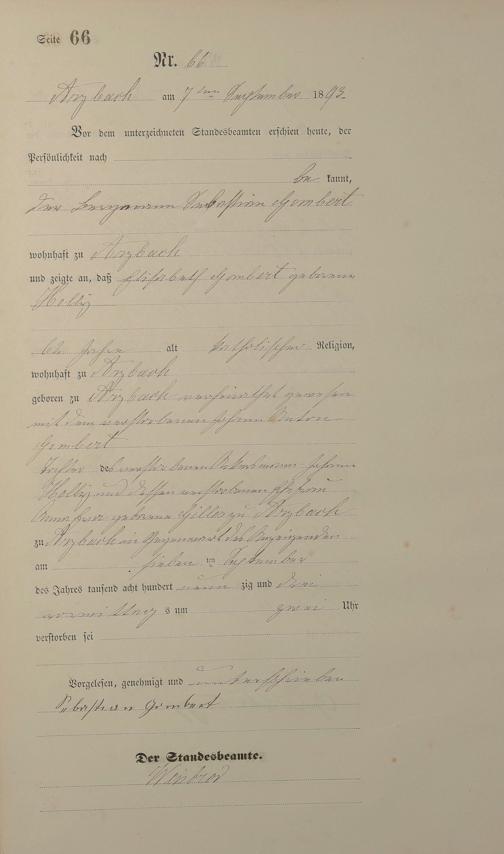 Seite 66
Nr. 66
Arzbach am 7ten September 1893.
Vor dem unterzeichneten Standesbeamten erschien heute, der
Persönlichkeit nach
be kannt,
der Bergmann Sebastian Gombert
wohnhaft zu Arzbach
und zeigte an, daß Elisabeth Gombert geborene
Holly
62 Jahre alt katholischer Religion,
wohnhaft zu Arzbach
geboren zu Arzbach verheirathet gewesen
mit dem verstorbenen Johann Anton
Gombert
Tochter des verstorbenen Ackermann Johann
Holly und dessen verstorbenen Ehefrau
Anna geborene zu Arzbach
zu Arzbach in Gegenwart des Anzeigenden
am sieben ten September
des Jahres tausend acht hundert neun zig und drei
vormittag s um zwei Uhr
verstorben sei
Vorgelesen, genehmigt und unterschrieben
Sebastian Gombert
Der Standesbeamte.